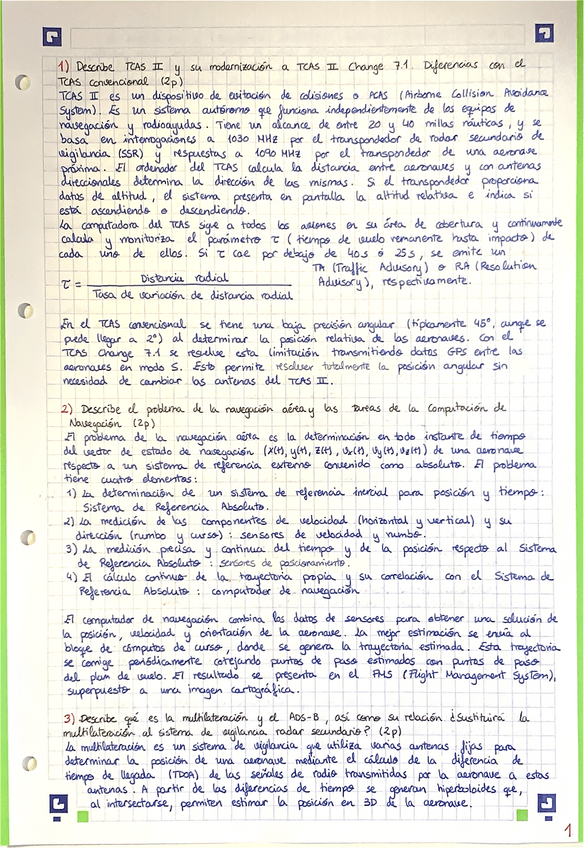 1) Describe TCAS II y su modernización a TCAS II Change 7.1. Diferencias con el
TCAS convencional (2p)
TCAS II es un dispositivo de evitación de colisiones o ACAS (Airborne Collision Avoidance
System). Es un sistema autónomo que funciona independientemente de los equipos de
navegación y radioayudas. Tiene un alcance de entre 20 y 40 millas náuticas, y se
basa en interrogaciones a 1030 MHz por el transpondedor de radar secundario de
vigilancia (SSR) y respuestas a 1090 MHz por el transpondedor de una aeronave
próxima. El ordenador del TCAS calcula la distancia entre aeronaves y con antenas
direccionales determina la dirección de las mismas. Si el transpondedor proporciona
datos de altitud, el sistema presenta en pantalla la altitud relativa e indica si
está ascendiendo o descendiendo.
La computadora del TCAS sigue a todos los aviones en su área de cobertura y continuamente
calcula y monitoriza el parámetro τ (tiempo de vuelo remanente hasta impacto) de
cada uno de ellos. Si τ cae por debajo de 40s ó 25s, se emite un
TA (Traffic Advisory) o RA (Resolution
Advisory), respectivamente.
τ = Distancia radial
Tasa de variación de distancia radial
En el TCAS convencional se tiene una baja precisión angular (típicamente 45°, aunque se
puede llegar a 2°) al determinar la posición relativa de las aeronaves. Con el
TCAS Change 7.1 se resuelve esta limitación transmitiendo datos GPS entre las
aeronaves en modo S. Esto permite resolver totalmente la posición angular sin
necesidad de cambiar las antenas del TCAS II.
2) Describe el problema de la navegación aérea y las tareas de la Computación de
Navegación (2p)
El problema de la navegación aérea es la determinación en todo instante de tiempo
del vector de estado de navegación (x(t), y(t), z(t), vx(t), vy(t), vz(t)) de una aeronave
respecto a un sistema de referencia externo convenido como absoluto. El problema
tiene cuatro elementos:
1) La determinación de un sistema de referencia inercial para posición y tiempo:
Sistema de Referencia Absoluto.
2) La medición de las componentes de velocidad (horizontal y vertical) y su
dirección (rumbo y curso): sensores de velocidad y rumbo.
3) La medición precisa y continua del tiempo y de la posición respecto al Sistema
de Referencia Absoluto: sensores de posicionamiento.
4) El cálculo continuo de la trayectoria propia y su correlación con el Sistema de
Referencia Absoluto: computador de navegación
El computador de navegación combina los datos de sensores para obtener una solución de
la posición, velocidad y orientación de la aeronave. La mejor estimación se envía al
bloque de cómputos de curso, donde se genera la trayectoria estimada. Esta trayectoria
se corrige periódicamente cotejando puntos de paso estimados con puntos de paso
del plan de vuelo. El resultado se presenta en el FMS (Flight Management System),
superpuesto a una imagen cartográfica.
3) Describe qué es la multilateración y el ADS-B, así como su relación ¿Sustituirá la
multilateración al sistema de vigilancia radar secundario? (2p)
La multilateración es un sistema de vigilancia que utiliza varias antenas fijas para
determinar la posición de una aeronave mediante el cálculo de la diferencia de
tiempo de llegada (TDOA) de las señales de radio transmitidas por la aeronave a estas
antenas. A partir de las diferencias de tiempo se generan hiperboloides que,
al intersectarse, permiten estimar la posición en 3D de la aeronave.
1